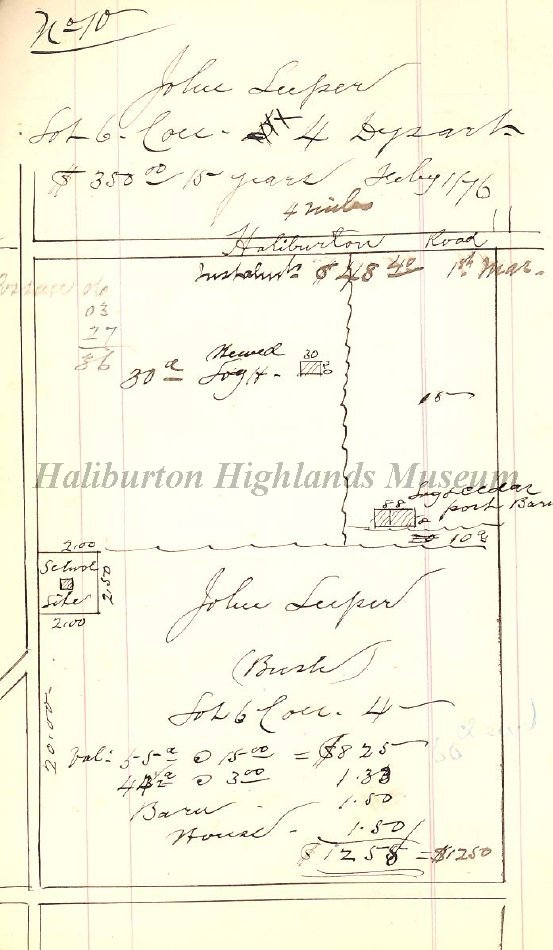 No 10
John Leeper
Lot 6 Con. 4 Dysart
$ 350 00 15 years Feby 1/76
4 miles
Haliburton Road
Instalmts $ 48 40 1st Mar.
06
03
27
36
30 a
Hewed
Log H - 30
15
Haliburton Highlands Museum
Log & cedar
post Barn
88
10 a
2.00
School
Site
2.50
2.00
John Leeper
(Bush)
Lot 6 Con. 4
20.00
Val: 55 a @ 15 00 = $825
44 1/2 a @ 3 00 1.33
Barn - 1.50
House - 1.50
$1258 = $1250